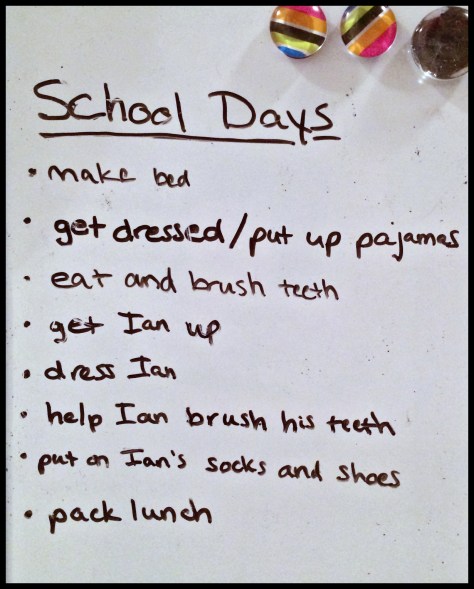 School Days
• make bed
• get dressed/put up pajamas
• eat and brush teeth
• get Ian up
• dress Ian
• help Ian brush his teeth
• put on Ian's socks and shoes
• pack lunch